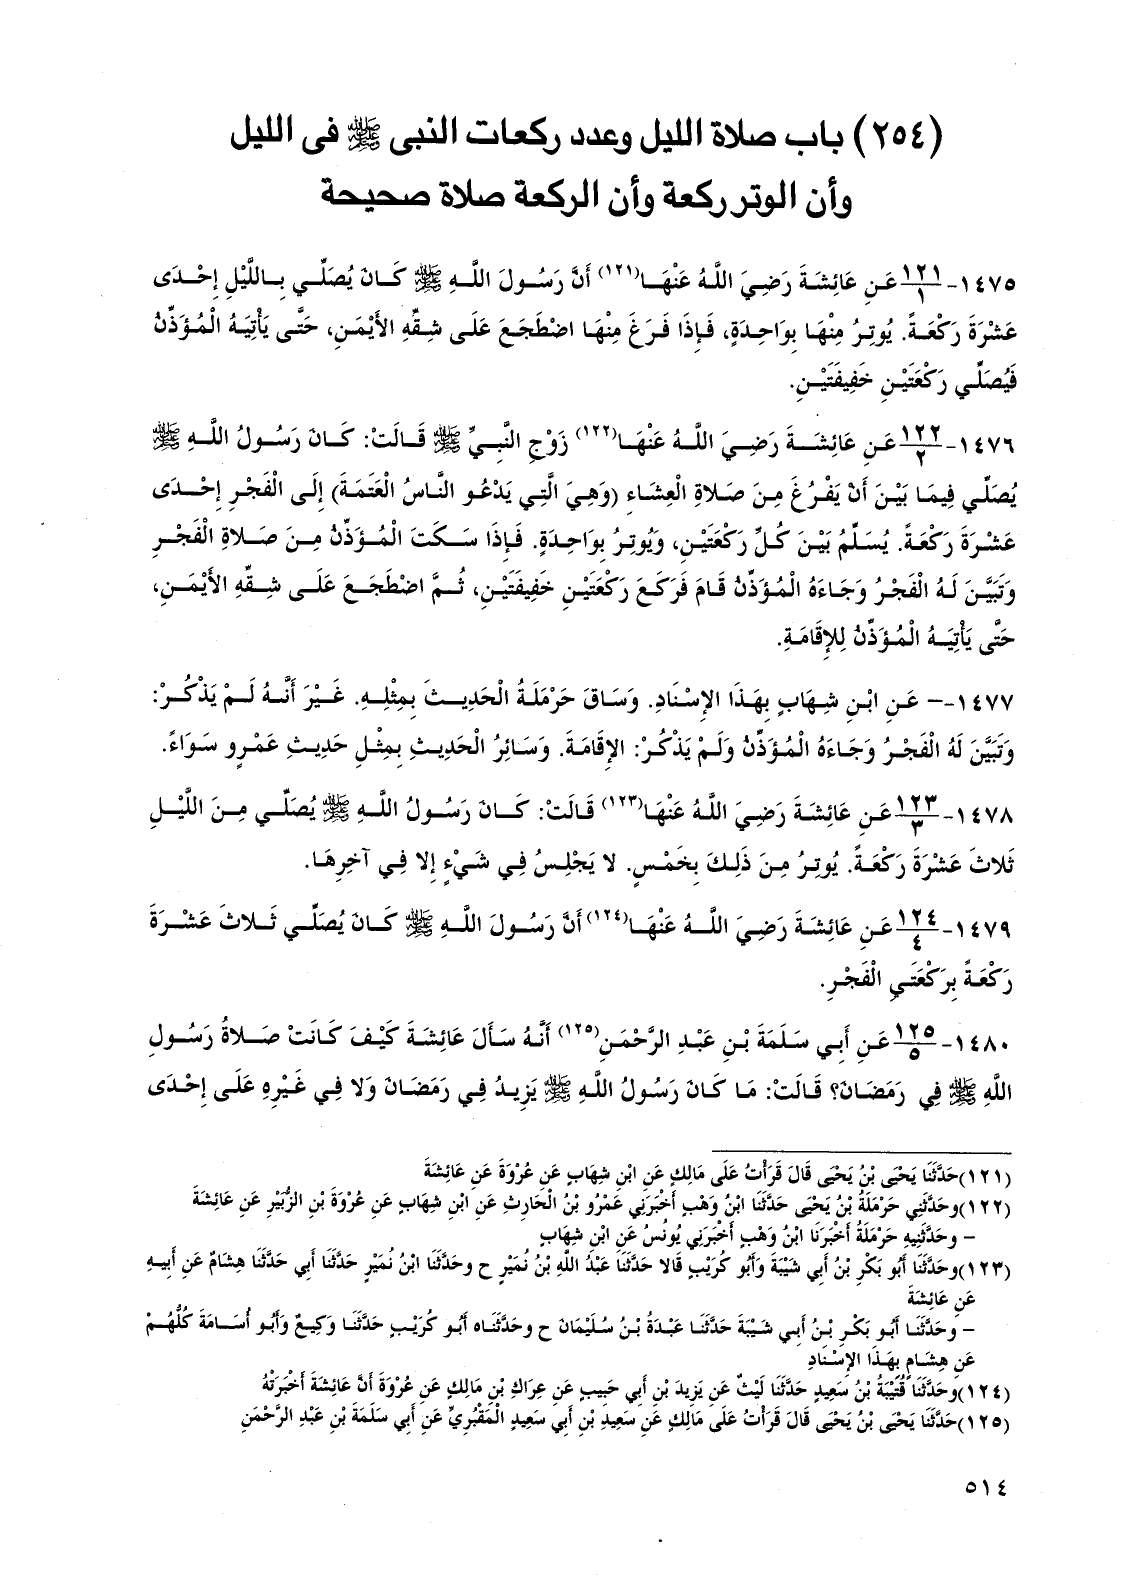 (٢٥٤) باب صلاة الليل وعدد ركعات النبى ﷺ فى الليل
وأن الوتر ركعة وأن الركعة صلاة صحيحة
١٤٧٥- ١٢١/١ عَنِ عَائِشَةَ رَضِيَ اللَّهُ عَنْهَا(١٢١) أَنَّ رَسُولَ اللَّهِ ﷺ كَانَ يُصَلِّي بِاللَّيْلِ إِحْدَى
عَشْرَةَ رَكْعَةً. يُوتِرُ مِنْهَا بِوَاحِدَةٍ، فَإِذَا فَرَغَ مِنْهَا اضْطَجَعَ عَلَى شِقِّهِ الأَيْمَنِ، حَتَّى يَأْتِيَهُ الْمُؤَذِّنُ
فَيُصَلِّي رَكْعَتَيْنِ خَفِيفَتَيْنِ.
١٤٧٦- ١٢٢/٢ عَنِ عَائِشَةَ رَضِيَ اللَّهُ عَنْهَا(١٢٢) زَوْجِ النَّبِيِّ ﷺ قَالَتْ: كَانَ رَسُولُ اللَّهِ ﷺ
يُصَلِّي فِيمَا بَيْنَ أَنْ يَفْرُغَ مِنَ صَلاةِ الْعِشَاءِ (وَهِيَ الَّتِي يَدْعُو النَّاسُ الْعَتَمَةَ) إِلَى الْفَجْرِ إِحْدَى
عَشْرَةَ رَكْعَةً. يُسَلِّمُ بَيْنَ كُلِّ رَكْعَتَيْنِ، وَيُوتِرُ بِوَاحِدَةٍ. فَإِذَا سَكَتَ الْمُؤَذِّنُ مِنَ صَلاةِ الْفَجْرِ
وَتَبَيَّنَ لَهُ الْفَجْرُ وَجَاءَهُ الْمُؤَذِّنُ قَامَ فَرَكَعَ رَكْعَتَيْنِ خَفِيفَتَيْنِ، ثُمَّ اضْطَجَعَ عَلَى شِقِّهِ الأَيْمَنِ،
حَتَّى يَأْتِيَهُ الْمُؤَذِّنُ لِلإِقَامَةِ.
١٤٧٧- – عَنِ ابْنِ شِهَابٍ بِهَذَا الإِسْنَادِ. وَسَاقَ حَرْمَلَةُ الْحَدِيثَ بِمِثْلِهِ. غَيْرَ أَنَّهُ لَمْ يَذْكُرْ:
وَتَبَيَّنَ لَهُ الْفَجْرُ وَجَاءَهُ الْمُؤَذِّنُ وَلَمْ يَذْكُرْ: الإِقَامَةَ. وَسَائِرُ الْحَدِيثِ بِمِثْلِ حَدِيثِ عَمْرٍو سَوَاءً.
١٤٧٨- ١٢٣/٣ عَنِ عَائِشَةَ رَضِيَ اللَّهُ عَنْهَا(١٢٣) قَالَتْ: كَانَ رَسُولُ اللَّهِ ﷺ يُصَلِّي مِنَ اللَّيْلِ
ثَلاثَ عَشْرَةَ رَكْعَةً. يُوتِرُ مِنَ ذَلِكَ بِخَمْسٍ. لا يَجْلِسُ فِي شَيْءٍ إِلا فِي آخِرِهَا.
١٤٧٩- ١٢٤/٤ عَنِ عَائِشَةَ رَضِيَ اللَّهُ عَنْهَا(١٢٤) أَنَّ رَسُولَ اللَّهِ ﷺ كَانَ يُصَلِّي ثَلاثَ عَشْرَةَ
رَكْعَةً بِرَكْعَتَيِ الْفَجْرِ.
١٤٨٠- ١٢٥/٥ عَنِ أَبِي سَلَمَةَ بْنِ عَبْدِ الرَّحْمَنِ(١٢٥) أَنَّهُ سَأَلَ عَائِشَةَ كَيْفَ كَانَتْ صَلاةُ رَسُولِ
اللَّهِ ﷺ فِي رَمَضَانَ؟ قَالَتْ: مَا كَانَ رَسُولُ اللَّهِ ﷺ يَزِيدُ فِي رَمَضَانَ وَلا فِي غَيْرِهِ عَلَى إِحْدَى
(١٢١)حَدَّثَنَا يَحْيَى بْنُ يَحْيَى قَالَ قَرَأْتُ عَلَى مَالِكٍ عَنِ ابْنِ شِهَابٍ عَنِ عُرْوَةَ عَنِ عَائِشَةَ
(١٢٢)وحَدَّثَنِي حَرْمَلَةُ بْنُ يَحْيَى حَدَّثَنَا ابْنُ وَهْبٍ أَخْبَرَنِي عَمْرُو بْنُ الْحَارِثِ عَنِ ابْنِ شِهَابٍ عَنِ عُرْوَةَ بْنِ الزُّبَيْرِ عَنِ عَائِشَةَ
– وحَدَّثَنِيهِ حَرْمَلَةُ أَخْبَرَنَا ابْنُ وَهْبٍ أَخْبَرَنِي يُونُسُ عَنِ ابْنِ شِهَابٍ
(١٢٣)وحَدَّثَنَا أَبُو بَكْرِ بْنُ أَبِي شَيْبَةَ وَأَبُو كُرَيْبٍ قَالا حَدَّثَنَا عَبْدُ اللَّهِ بْنُ نُمَيْرٍ ح وحَدَّثَنَا ابْنُ نُمَيْرٍ حَدَّثَنَا أَبِي حَدَّثَنَا هِشَامٌ عَنِ أَبِيهِ
عَنِ عَائِشَةَ
– وحَدَّثَنَا أَبُو بَكْرِ بْنُ أَبِي شَيْبَةَ حَدَّثَنَا عَبْدَةُ بْنُ سُلَيْمَانَ ح وحَدَّثَنَاه أَبُو كُرَيْبٍ حَدَّثَنَا وَكِيعٌ وَأَبُو أُسَامَةَ كُلُّهُمْ
عَنِ هِشَامٍ بِهَذَا الإِسْنَادِ
(١٢٤)وحَدَّثَنَا قُتَيْبَةُ بْنُ سَعِيدٍ حَدَّثَنَا لَيْثٌ عَنِ يَزِيدَ بْنِ أَبِي حَبِيبٍ عَنِ عِرَاكِ بْنِ مَالِكٍ عَنِ عُرْوَةَ أَنَّ عَائِشَةَ أَخْبَرَتْهُ
(١٢٥)حَدَّثَنَا يَحْيَى بْنُ يَحْيَى قَالَ قَرَأْتُ عَلَى مَالِكٍ عَنِ سَعِيدِ بْنِ أَبِي سَعِيدٍ الْمَقْبُرِيِّ عَنِ أَبِي سَلَمَةَ بْنِ عَبْدِ الرَّحْمَنِ
٥١٤